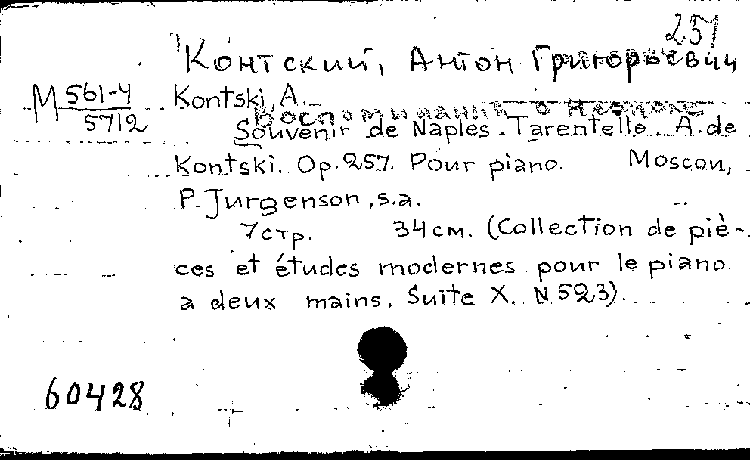 257
Контский, Антон Григорьевич
М 561-4
5712
Kontski, A.
Воспоминание о Неаполе
Souvenir de Naples. Tarentelle. A. de
Kontski. Op. 257. Pour piano. Moscou,
P. Jurgenson, s.a.
7 стр. 34 см. (Collection de piè-
ces et études modernes pour le piano
a deux mains. Suite X. N 523)
60428